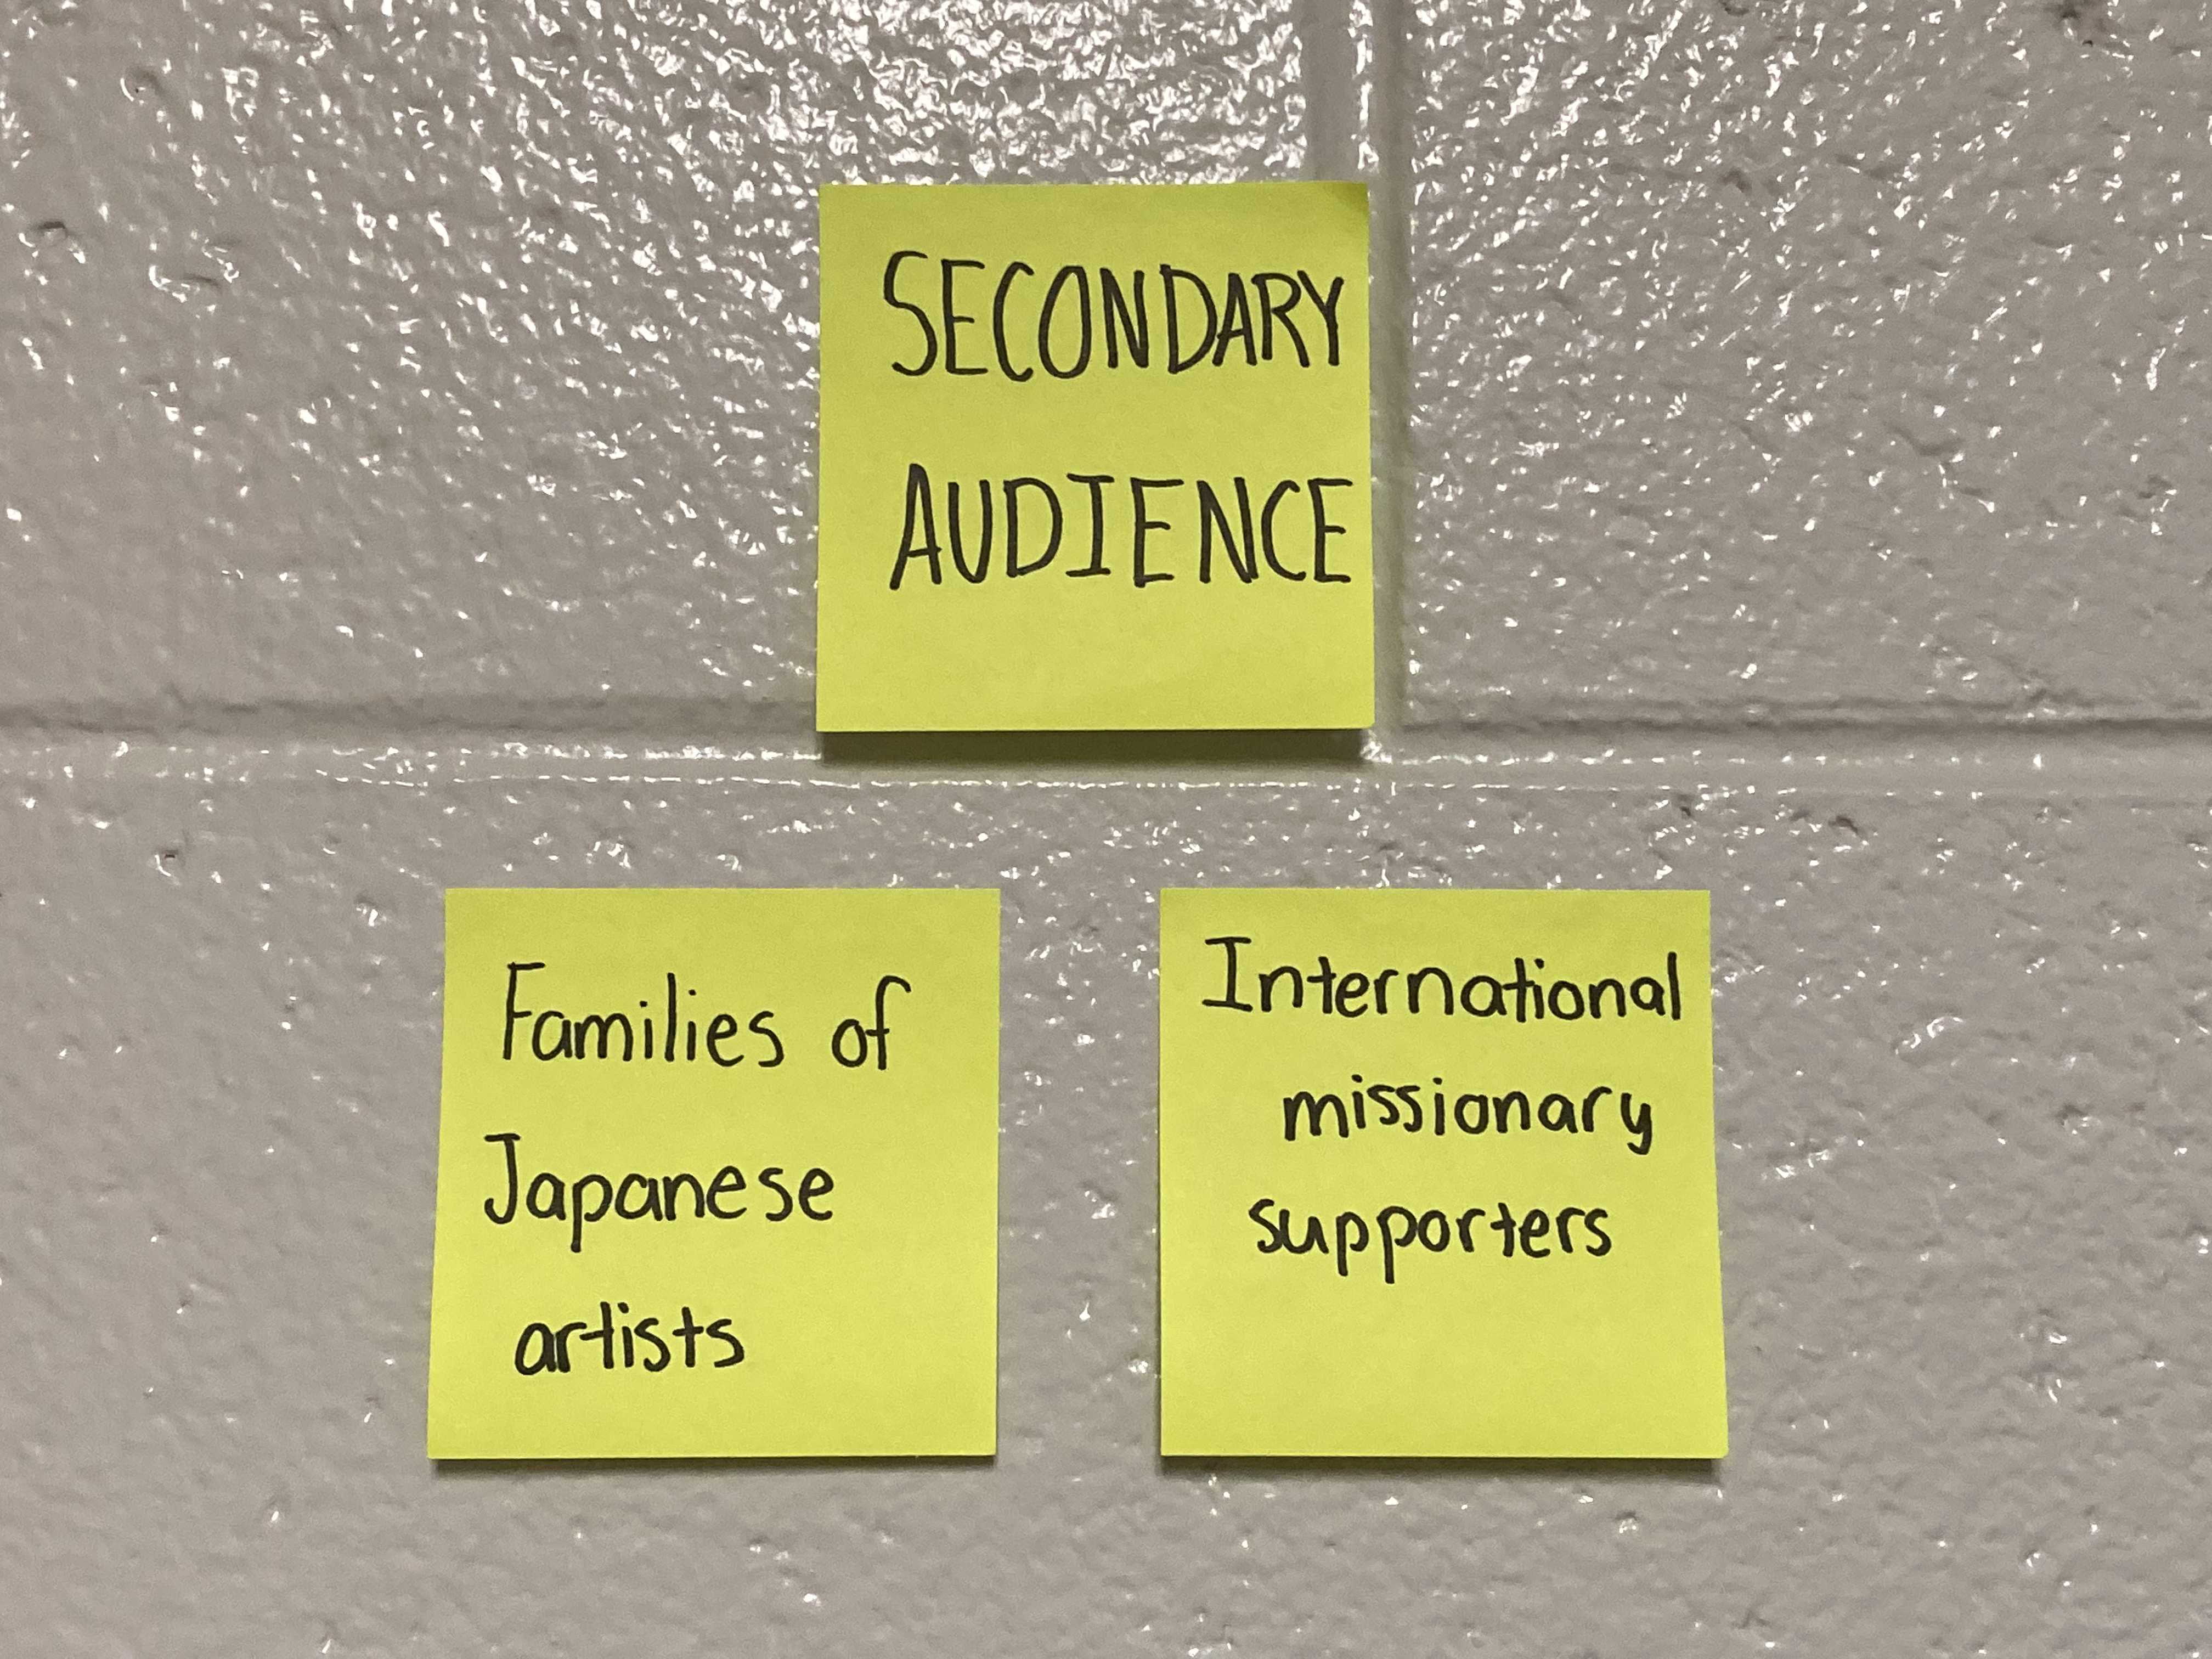 SECONDARY
AUDIENCE
Families of
Japanese
artists
International
missionary
supporters